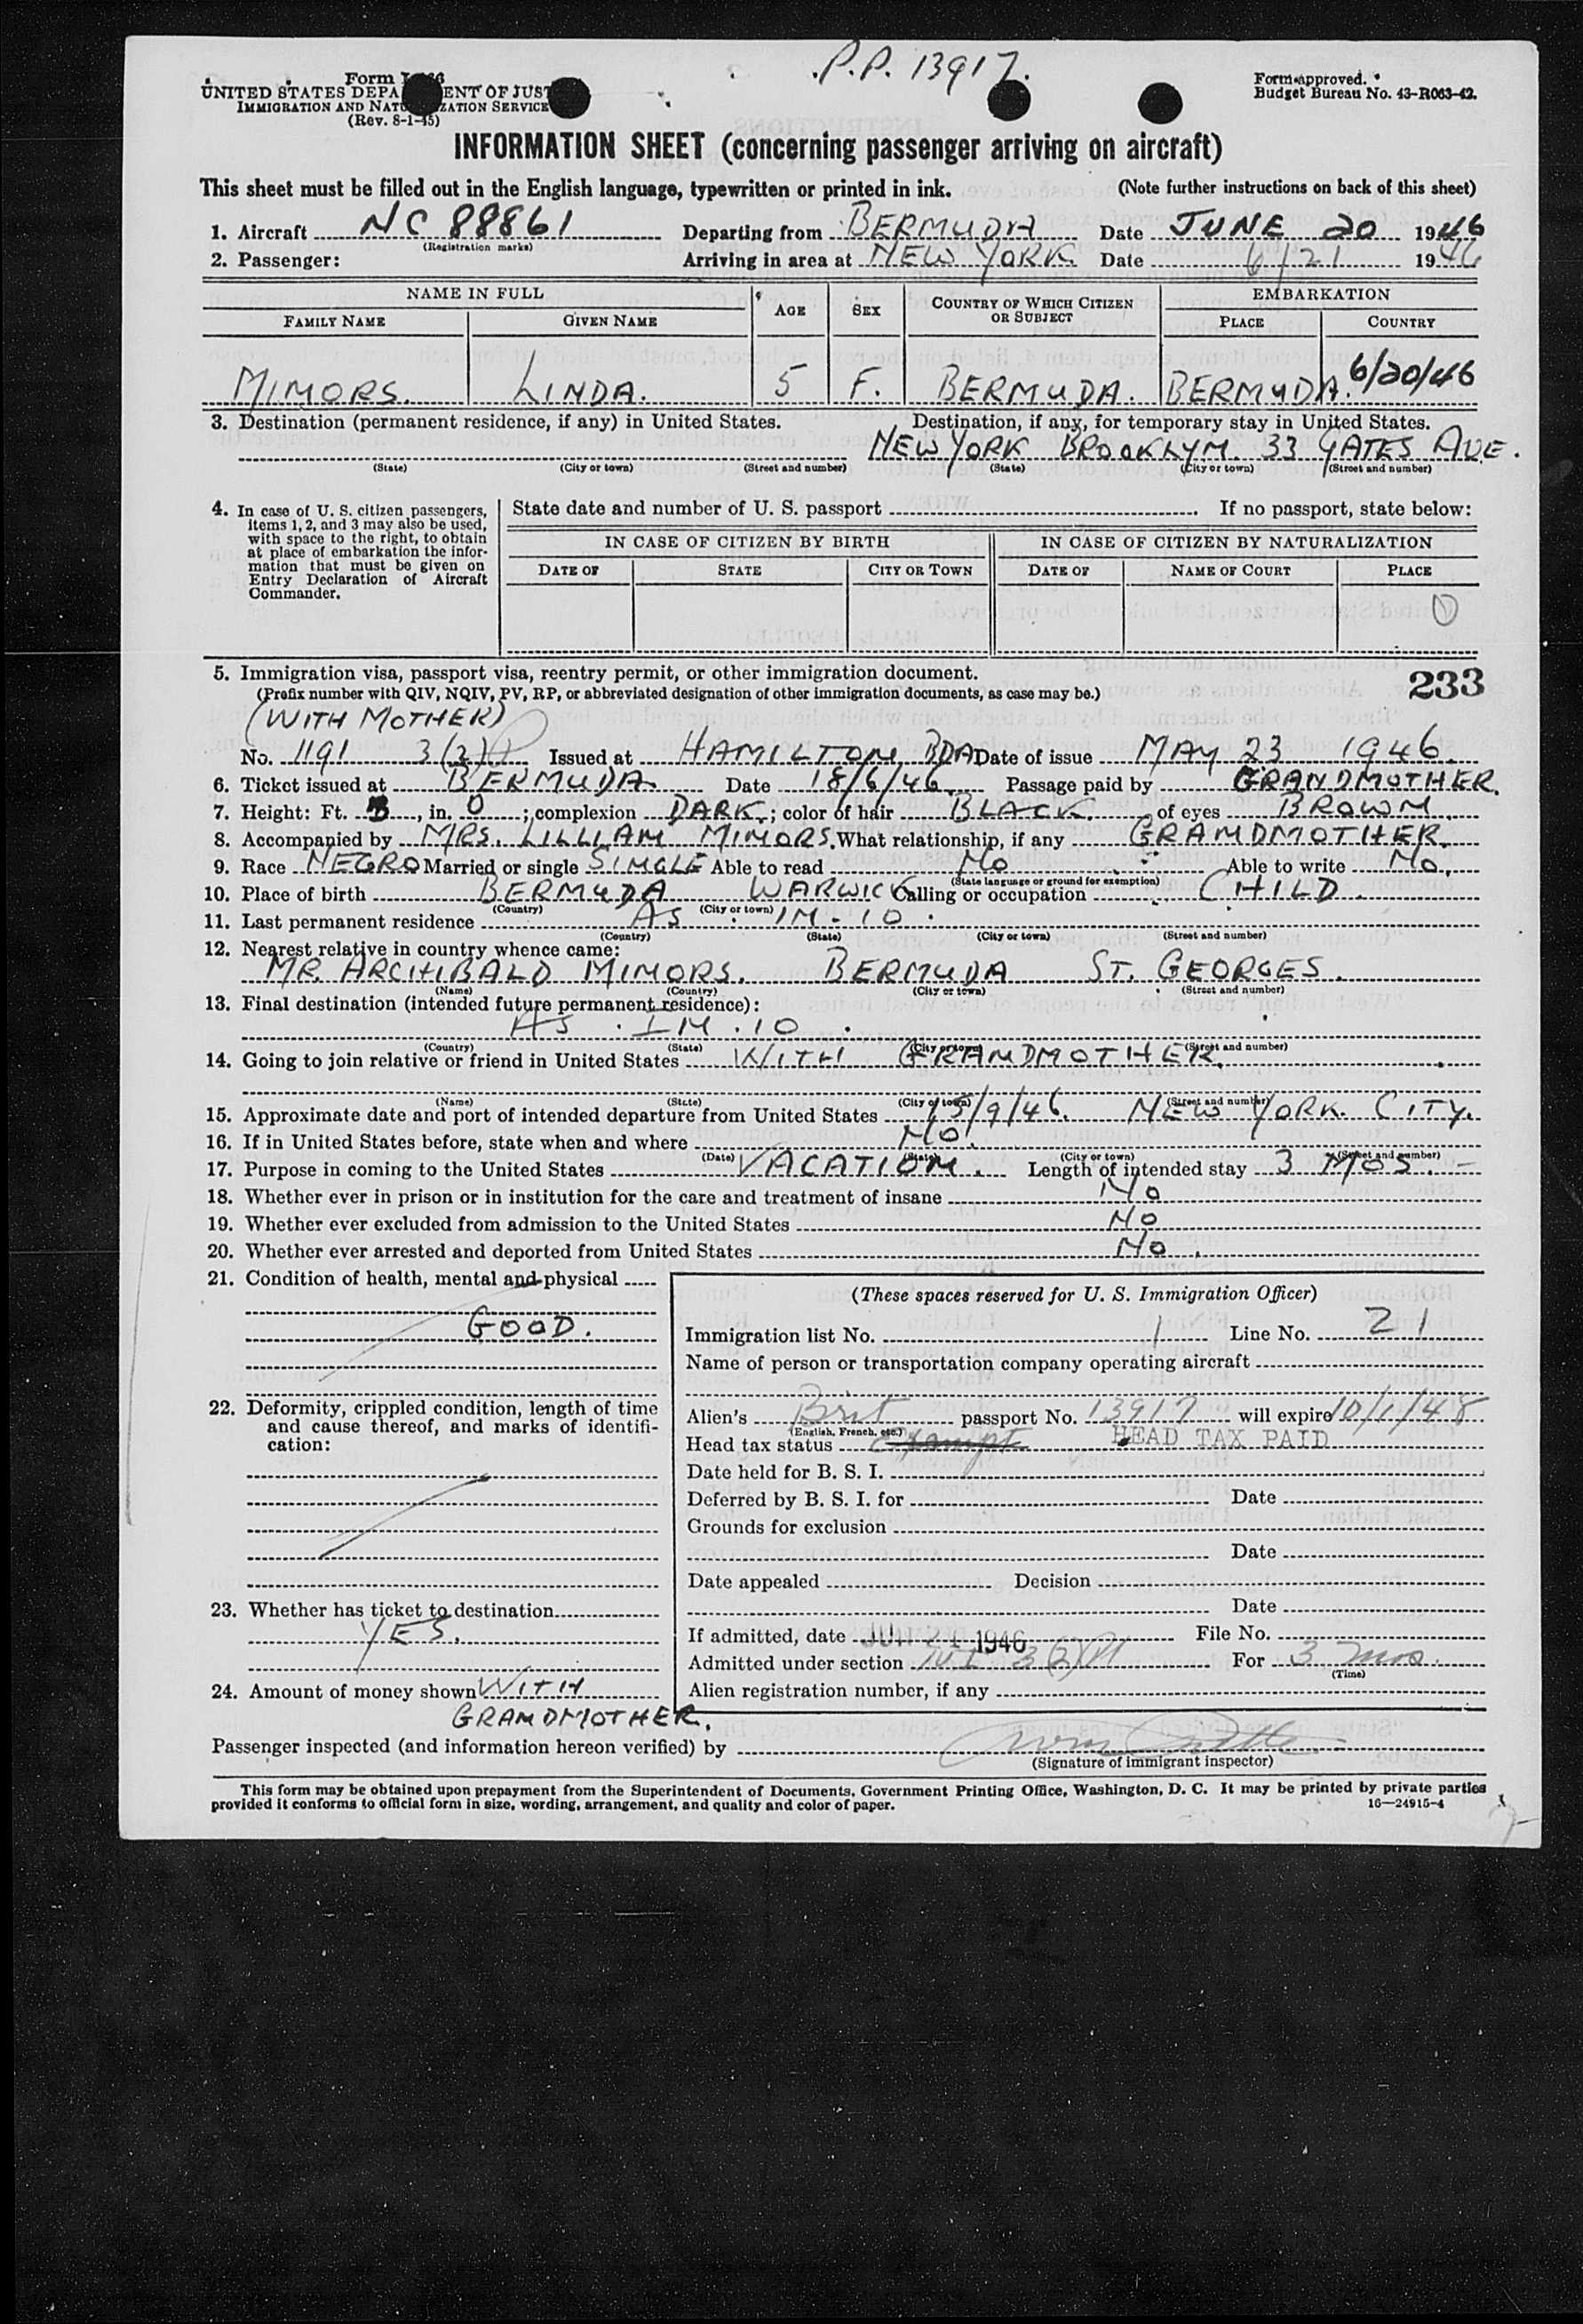 P.P. 13917.
Form I-466
UNITED STATES DEPARTMENT OF JUSTICE
IMMIGRATION AND NATURALIZATION SERVICE
(Rev. 8-1-45)
Form approved.
Budget Bureau No. 43-R063-42.
INFORMATION SHEET (concerning passenger arriving on aircraft)
This sheet must be filled out in the English language, typewritten or printed in ink. (Note further instructions on back of this sheet)
1. Aircraft NC 88861 Departing from BERMUDA Date JUNE 20 1946
(Registration marks)
2. Passenger: Arriving in area at NEW YORK Date 6/21 1946
NAME IN FULL AGE SEX COUNTRY OF WHICH CITIZEN OR SUBJECT EMBARKATION
FAMILY NAME GIVEN NAME PLACE COUNTRY
MINORS. LINDA. 5 F. BERMUDA. BERMUDA. 6/20/46
3. Destination (permanent residence, if any) in United States. Destination, if any, for temporary stay in United States.
NEW YORK BROOKLYN. 33 GATES AVE.
(State) (City or town) (Street and number) (State) (City or town) (Street and number)
4. In case of U. S. citizen passengers, items 1, 2, and 3 may also be used, with space to the right, to obtain at place of embarkation the information that must be given on Entry Declaration of Aircraft Commander.
State date and number of U. S. passport If no passport, state below:
IN CASE OF CITIZEN BY BIRTH IN CASE OF CITIZEN BY NATURALIZATION
DATE OF STATE CITY OR TOWN DATE OF NAME OF COURT PLACE
5. Immigration visa, passport visa, reentry permit, or other immigration document. 233
(Prefix number with QIV, NQIV, PV, RP, or abbreviated designation of other immigration documents, as case may be.)
(WITH MOTHER)
No. 1191 3(2) Issued at HAMILTON BDA Date of issue MAY 23 1946.
6. Ticket issued at BERMUDA Date 18/6/46 Passage paid by GRANDMOTHER.
7. Height: Ft. 3, in. 0; complexion DARK.; color of hair BLACK. of eyes BROWN.
8. Accompanied by MRS. LILLIAN MINORS. What relationship, if any GRANDMOTHER.
9. Race NEGRO Married or single SINGLE Able to read No Able to write No.
(State language or ground for exemption)
10. Place of birth BERMUDA WARWICK Calling or occupation CHILD.
(Country) (City or town)
11. Last permanent residence AS IN. 10.
(Country) (State) (City or town) (Street and number)
12. Nearest relative in country whence came:
MR. ARCHIBALD MINORS. BERMUDA ST. GEORGES.
(Name) (Country) (City or town) (Street and number)
13. Final destination (intended future permanent residence):
AS. IN. 10.
(Country) (State) (City or town) (Street and number)
14. Going to join relative or friend in United States WITH GRANDMOTHER.
(Name) (State) (City or town) (Street and number)
15. Approximate date and port of intended departure from United States 15/9/46. NEW YORK. CITY.
16. If in United States before, state when and where No.
(Date) (State) (City or town) (Street and number)
17. Purpose in coming to the United States VACATION. Length of intended stay 3 MOS. -
18. Whether ever in prison or in institution for the care and treatment of insane No
19. Whether ever excluded from admission to the United States No
20. Whether ever arrested and deported from United States No.
21. Condition of health, mental and physical
GOOD.
22. Deformity, crippled condition, length of time and cause thereof, and marks of identification:
23. Whether has ticket to destination
YES.
24. Amount of money shown WITH
GRANDMOTHER.
(These spaces reserved for U. S. Immigration Officer)
Immigration list No. 1 Line No. 21
Name of person or transportation company operating aircraft
Alien's Brit passport No. 13917 will expire 10/1/48
(English, French, etc.)
Head tax status exempt HEAD TAX PAID
Date held for B. S. I.
Deferred by B. S. I. for Date
Grounds for exclusion
Date
Date appealed Decision
Date
If admitted, date JUN 21 1946 File No.
Admitted under section 3(2) For 3 mos.
(Time)
Alien registration number, if any
Passenger inspected (and information hereon verified) by
(Signature of immigrant inspector)
This form may be obtained upon prepayment from the Superintendent of Documents, Government Printing Office, Washington, D. C. It may be printed by private parties
provided it conforms to official form in size, wording, arrangement, and quality and color of paper. 16—24915-4